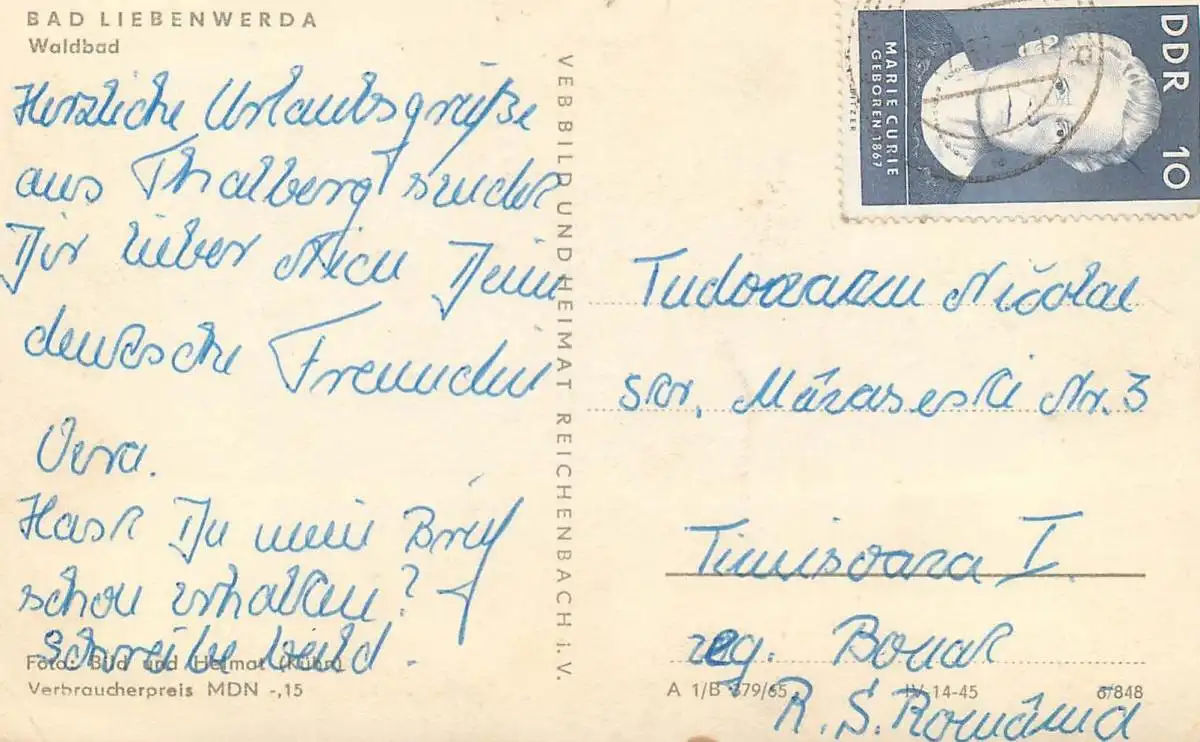 BAD LIEBENWERDA
Waldbad
Herzliche Urlaubsgrüße
aus Thalberg sendet
Dir lieber Nicu Deine
deutsche Freundin
Vera.
Hast Du mein Brief
schon erhalten?
Schreibe bald.
Foto: Bild und Heimat (Kühn)
Verbraucherpreis MDN -,15
VEB BILD UND HEIMAT REICHENBACH i. V.
DDR 10
MARIE CURIE
GEBOREN 1867
Tudoraru Nicolae
str. Mărăsesti Nr. 3
Timisoara I.
reg. Banat
R. S. România
A 1/B 379/65
IV-14-45
6/848